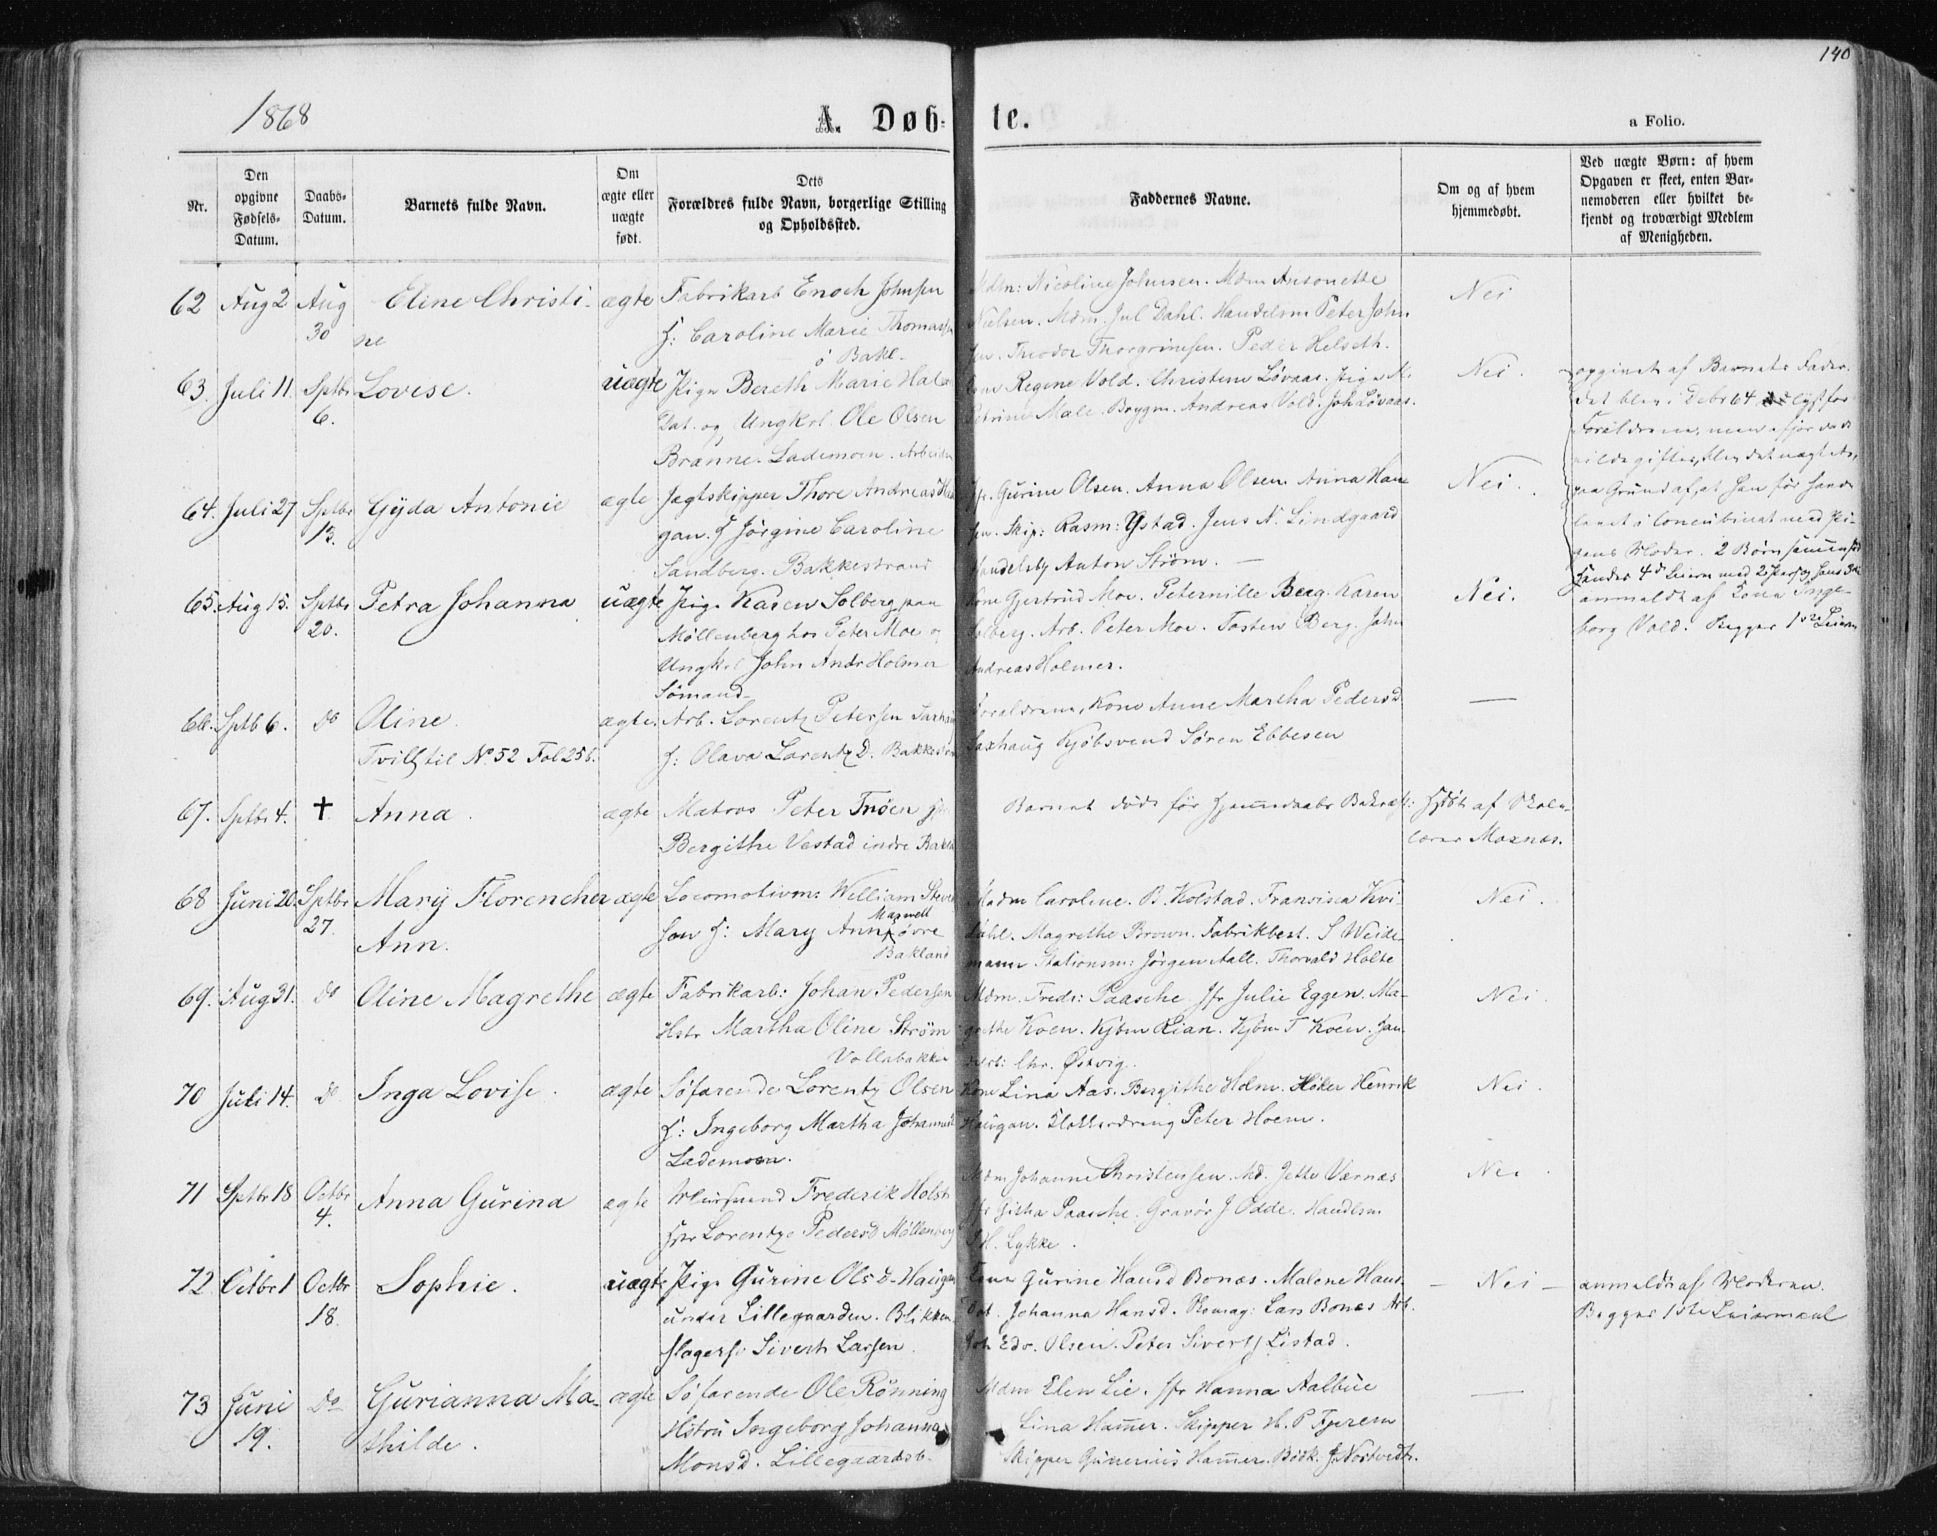 140
1868
A. Døbte.
a Folio.
Nr.
Den opgivne Fødsels-Datum.
Daabs-Datum.
Barnets fulde Navn.
Om ægte eller uægte født.
Dets Forældres fulde Navn, borgerlige Stilling og Opholdssted.
Faddernes Navne.
Om og af hvem hjemmedøbt.
Ved uægte Børn: af hvem Opgaven er skeet, enten Barnemoderen eller hvilket bekjendt og troværdigt Medlem af Menigheden.
62 Aug 2 Aug 30 Eline Christine ægte Fabrikarb Enoch Johnsen
H: Caroline Marie Thomas
ö Bakl.
Mdm: Nicoline Johnsen. Mdm Antonette
Nielsen. Mdm. Jul Dahl. Handelsm Peter John
sen. Theodor Thorgrimsen. Peder Helseth.
Nei
63. Juli 11. Sptbr 6. Lovise. uægte Pige Bereth Marie
Dat. og Ungkrl. Ole Olsen
Brønne. Lademoen. Arbeider
Kone Regine Vold. Christine Løvaas. Pige
Petrine Male. Brygm. Andreas Vold. Joh Løvaas.
Nei.
opgivet af Barnets Fader.
det blev i Debr 64 lyst for
Forældrene, men
vilde giftes, blev det nægtet,
paa Grund af, at han før havde
levet i Concubinat med Pi-
gens Moder. 2 Børn sammen
Hendes 4d Leierm med 2 Pers og hans 3die
64. Juli 27 Sptbr 13. Gÿda Antonie ægte Jagtskipper Thore Andreas
gan. H Jörgine Caroline
Sandberg. Bakkestrand
Jfr. Gurine Olsen. Anna Olsen. Anna Han
sen. Skip: Rasm: Ystad. Jens N. Lindgaard
Handelsb Anton Strøm. —
Nei.
65. Aug 15. Sptbr 20. Petra Johanna uægte Pige Karen Solberg paa
Møllenberg hos Peter Moe og
Ungkrl John Andr Holmer
Sömand
Kone Gjertrud Moe. Peternille Berg. Karen
Solberg. Arb. Peter Moe. Tosten Berg. John
Andreas Holmer.
Nei.
anmeldt af Kona Inge-
borg Vold. Begges 1ste Leierm
66. Sptb 6. do Oline. ægte. Arb. Lorentz Petersen Saxhaug
Tvill til No 52 Fol 256.
H: Olava Lorentz D. Bakkestr
Forældrene, Kone Anne Martha Pedersd
Saxhaug Kjøbsvend Søren Ebbesen
—
67. Sptbr 4. † Anna. ægte Matros Peter Trøen
Bergithe Vestad indre Bakl
Barnet døde før Hjemmedaabs Bekræft: Hjdøbt af Skole-
lærer Moxnes.
68 Juni 20. Sptbr 27. Mary Florencher ægte Locomotivm: William Steven
Ann.
son H: Mary Ann Maxwell øvre
Bakland
Madm Caroline. B. Kolstad. Francisca Kvi-
dahl. Magrethe Brown. Fabrikbest. S Weide-
mann Stationsm: Jørgen Aall. Thorvald Holte
Nei.
69. Aug 31. do Oline Magrethe ægte Fabrikarb: Johan Pedersen
Hstr Martha Oline Strøm
Vollabakken
Mdm. Fredr: Paasche. Jfr Julie Eggen. Ma-
grethe Koen. Kjbm Rian. Kjbm T Koen. Han
Chr. Østvig.
Nei.
70 Juli 14. do Inga Lovise. ægte Søfarende Lorentz Olsen
H: Ingeborg Martha Johannesd
Lademoen.
Kone Lina Aas. Bergithe Holm. Høker Henrik
Haugan. Klokkerdreng Peter Hoem.
Nei.
71 Sptbr 18 Octbr 4. Anna Gurina ægte Muursvend Frederik Holst
Hstr Lorentze Pedersd Møllenberg
Mdm Johanne Christensen. Md. Jette Værnes
Jfr Githa Paasche. Gravør J Odde. Handlsm
H. Lykke.
Nei.
72. Octbr 1 Octbr 18. Sophie. uægte Pige Gurine Ols D. Haugen
under Lillegaarden. Blikken
slagersv Sivert Larsen.
Kone Gurine Hansd Bonæs. Malene Hans
Dat. Johanna Hansd. Skomag: Lars Bonæs Arb.
Joh Edv. Olsen. Peter Siverts Listad.
— Nei —
anmeldt af Moderen.
Begges 1ste Leiermaal
73 Juni 19. Do Gurianna Ma- ægte Søfarende Ole Rönning
thilde.
Hstru Ingeborg Johanna
Monsd. Lillegaardsb.
Mdm Elen Lie. Jfr Hanna Aalbue
Lina Hamer. Skipper H. P Fjerem
Skipper Gunerius Hamer. Bødk. J. Nostvedt.
—